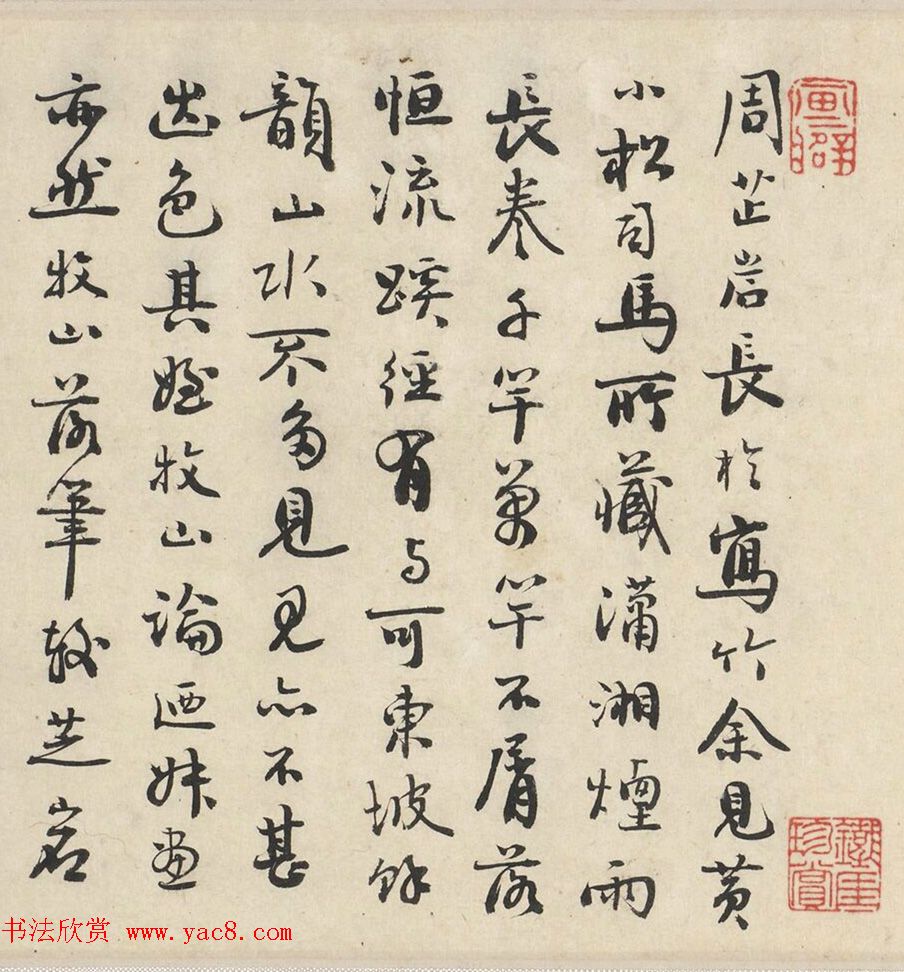 周芷岩長於寫竹余見黄
小松司馬所藏瀟湘煙雨
長卷千竿萬竿不屑落
恒流蹊徑有与可東坡餘
韻山水不多見見亦不甚
出色其姪牧山論画妹畫
亦然牧山落筆較芝岩
珍賞
书法欣赏 www.yac8.com